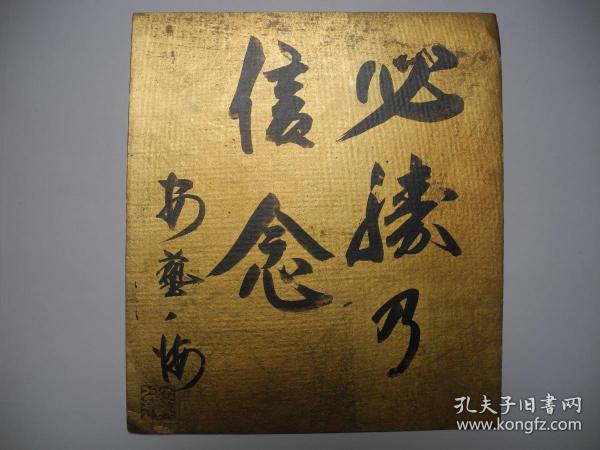 必勝乃
信念
安藝ノ海
孔夫子旧書网
www.kongfz.com